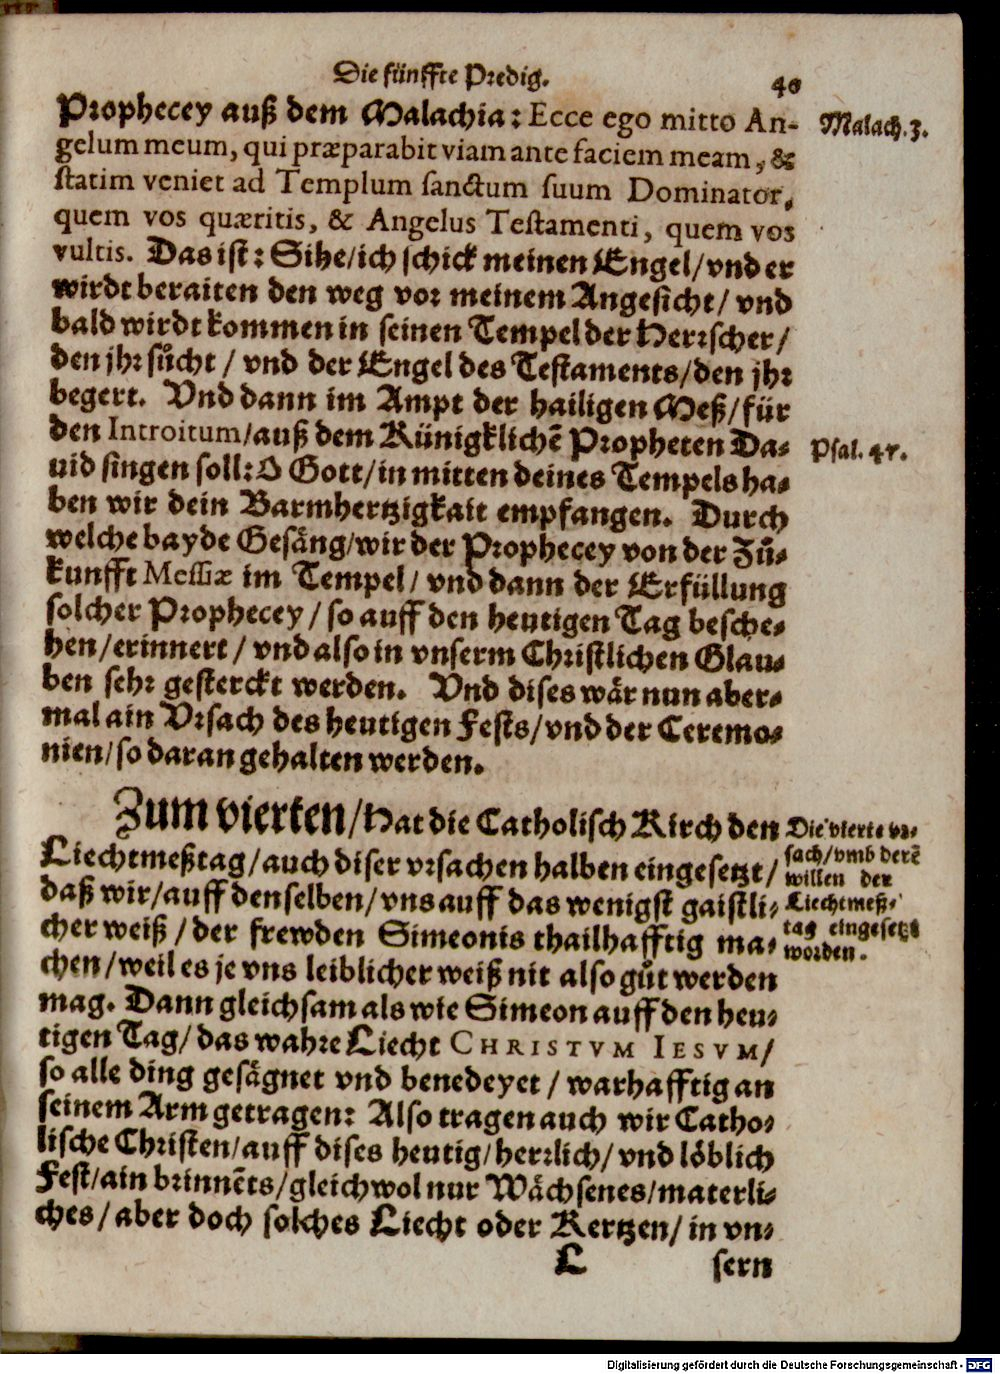 Die fünffte Predig.
40
Prophecey auß dem Malachia: Ecce ego mitto An-
gelum meum, qui præparabit viam ante faciem meam, &
statim veniet ad Templum sanctum suum Dominator,
quem vos quæritis, & Angelus Testamenti, quem vos
vultis. Das ist: Sihe/ich schick meinen Engel/vnd er
wirdt beraiten den weg vor meinem Angesicht/ vnd
bald wirdt kommen in seinen Tempel der Herrscher/
den jhr sůcht / vnd der Engel des Testaments/den jhr
begert. Vnd dann im Ampt der hailigen Meß/für
den Introitum/auß dem Künigklichẽ Propheten Da-
uid singen soll: O Gott/in mitten deines Tempels ha-
ben wir dein Barmhertzigkait empfangen. Durch
welche bayde Gesäng/wir der Prophecey von der Zů-
kunfft Messiæ im Tempel/ vnd dann der Erfüllung
solcher Prophecey / so auff den heutigen Tag besche-
hen/erinnert / vnd also in vnserm Christlichen Glau-
ben sehr gesterckt werden. Vnd dises wär nun aber-
mal ain Vrsach des heutigen Fests/vnd der Ceremo-
nien/so daran gehalten werden.
Malach.3.
Psal. 47.
Zum vierten/Hat die Catholisch Kirch den
Liechtmeßtag/auch diser vrsachen halben eingesetzt/
daß wir/auff denselben/vns auff das wenigst gaistli-
cher weiß / der frewden Simeonis thailhafftig ma-
chen/weil es je vns leiblicher weiß nit also gůt werden
mag. Dann gleichsam als wie Simeon auff den heu-
tigen Tag/ das wahre Liecht CHRISTVM IESVM/
so alle ding gesägnet vnd benedeyet / warhafftig an
seinem Arm getragen: Also tragen auch wir Catho-
lische Christen/auff dises heutig/herrlich/ vnd löblich
Fest/ain brinnẽts/gleichwol nur Wächsenes/materli-
ches/aber doch solches Liecht oder Kertzen/ in vn-
Die vierte vr-
sach/vmb derẽ
willen der
Liechtmeß-
tag eingesetzt
worden.
L
sern
Digitalisierung gefördert durch die Deutsche Forschungsgemeinschaft - DFG